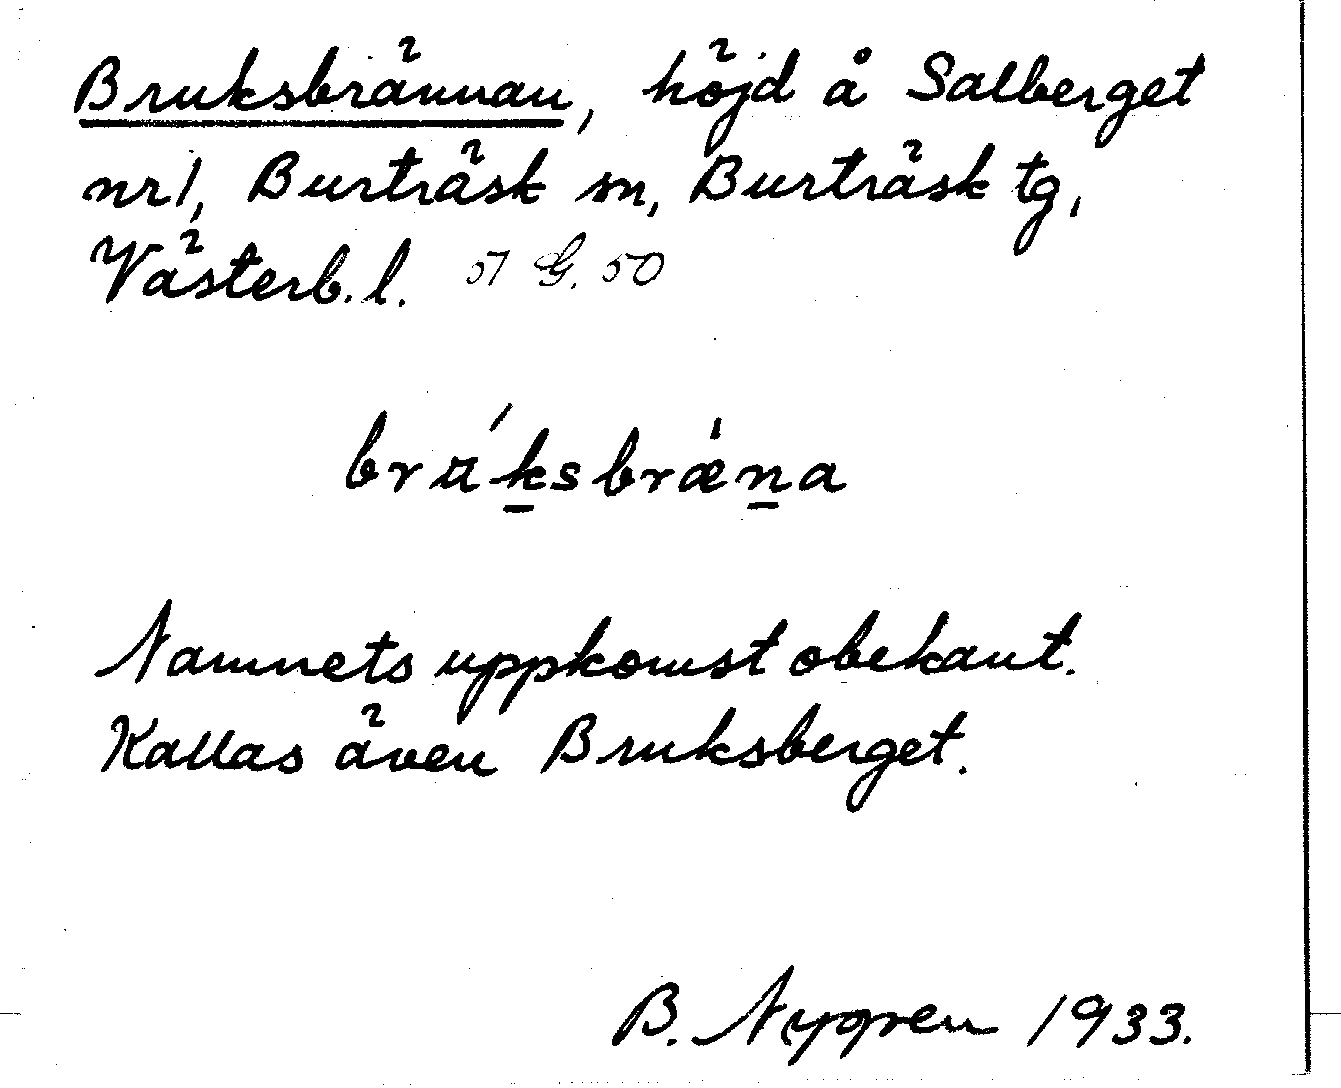 Bruksbrännan, höjd å Salberget
nr 1, Burträsk sn, Burträsk tg,
Västerb. l. 51 G. 50
brʉ́ksbrǽna
Namnets uppkomst obekant.
Kallas även Bruksberget.
B. Nygren 1933.